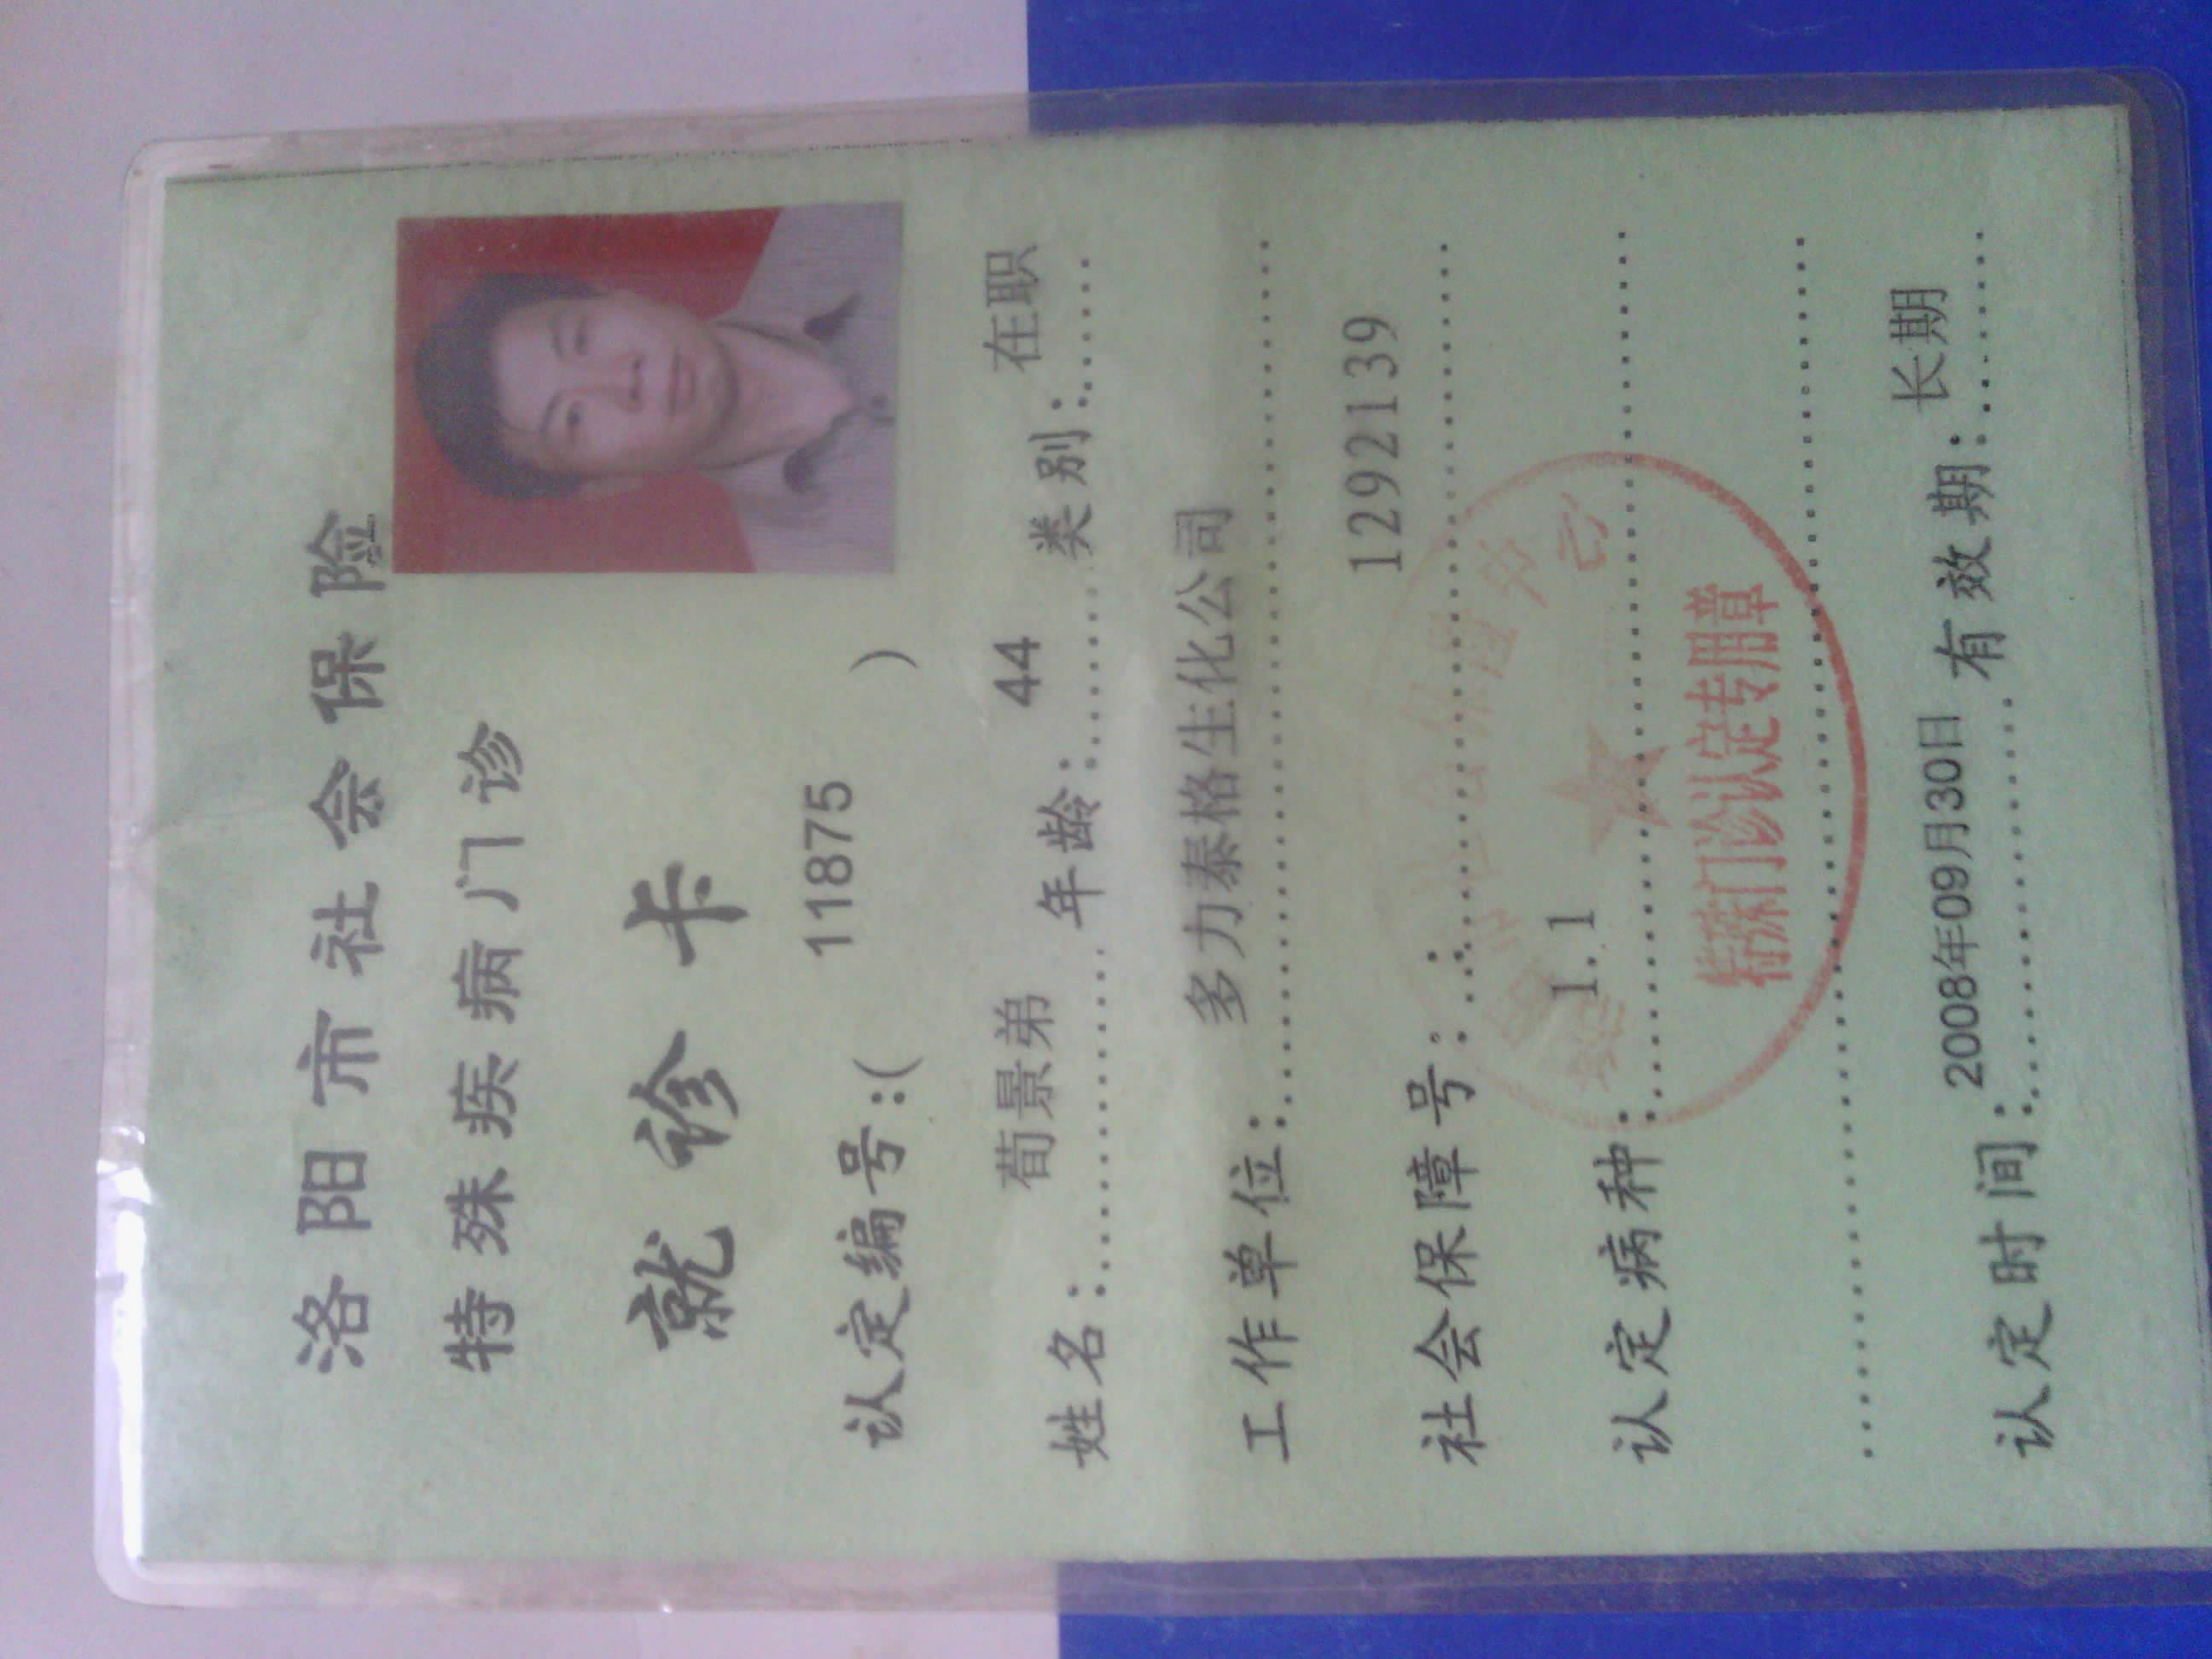 洛阳市社会保险
特殊疾病门诊
就诊卡
认定编号:( 11875 )
姓名: 荀景弟 年龄: 44 类别: 在职
工作单位: 多力泰格生化公司
社会保障号: 12921139
认定病种: 1.1
特病门诊认定专用章
认定时间: 2008年09月30日 有效期: 长期